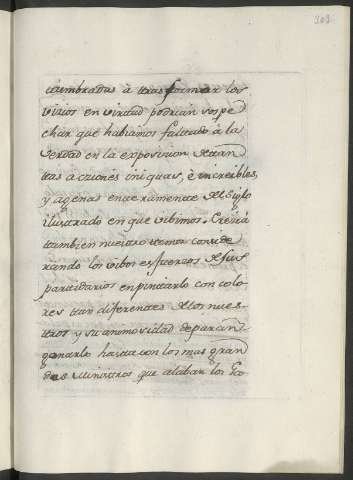 303
tumbradas à trasformar los
vicios en virtud podrian sospe
char que habiamos faltado à la
verdad en la exposicion de tan
tas acciones iniquas, è increibles,
y agenas enteramente del Siglo
ilustrado en que vibimos. Crecia
tambien nuestro temor conside
rando los vibos esfuerzos de sus
partidarios en pintarlo con colo
res tan diferentes de los nues
tros y su animosidad de paran
gonarlo hasta con los mas gran
des Ministros que alaban los